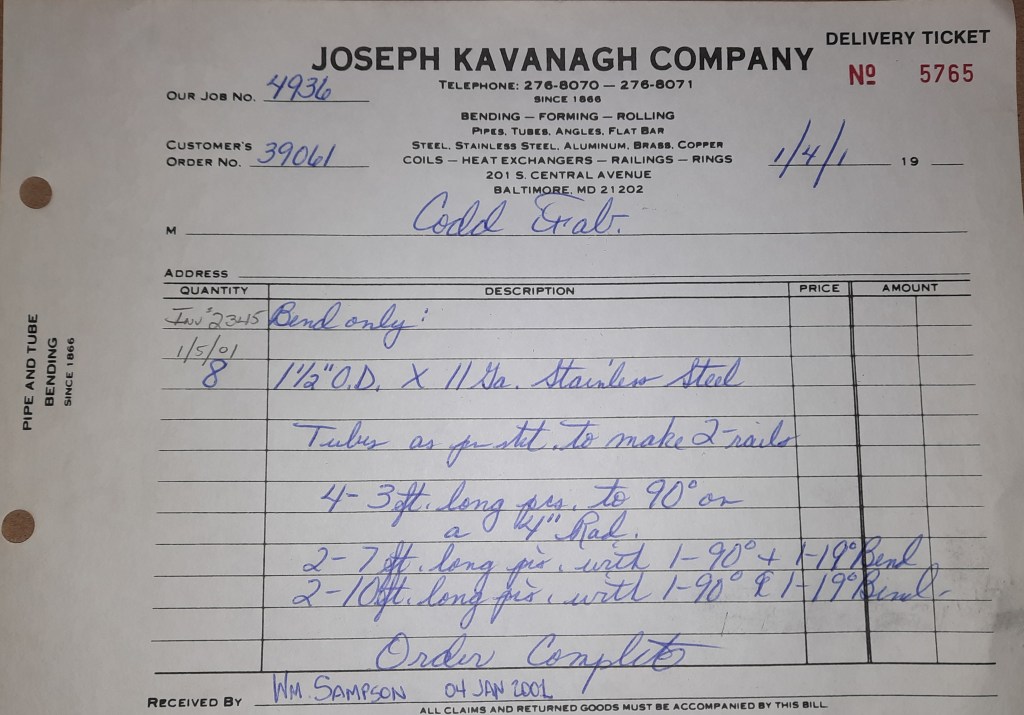 DELIVERY TICKET
JOSEPH KAVANAGH COMPANY
Nº 5765
TELEPHONE: 276-8070 — 276-8071
SINCE 1866
OUR JOB NO. 4936
BENDING — FORMING — ROLLING
PIPES, TUBES, ANGLES, FLAT BAR
STEEL, STAINLESS STEEL, ALUMINUM, BRASS, COPPER
COILS — HEAT EXCHANGERS — RAILINGS — RINGS
CUSTOMER'S
ORDER NO. 39061
1/4/1 19
201 S. CENTRAL AVENUE
BALTIMORE, MD 21202
M Codd Fab.
ADDRESS
QUANTITY DESCRIPTION PRICE AMOUNT
Inv # 2345 Bend only:
1/5/01
8 1½" O.D. X 11 Ga. Stainless Steel
Tubes as per skt. to make 2-rails
4- 3 ft. long pcs. to 90° on
a 4" Rad.
2- 7 ft. long pcs. with 1-90° + 1-19° Bend
2-10 ft. long pcs. with 1-90° & 1-19° Bend-
Order Complete
RECEIVED BY WM. SAMPSON 04 JAN 2001
ALL CLAIMS AND RETURNED GOODS MUST BE ACCOMPANIED BY THIS BILL
PIPE AND TUBE
BENDING
SINCE 1866